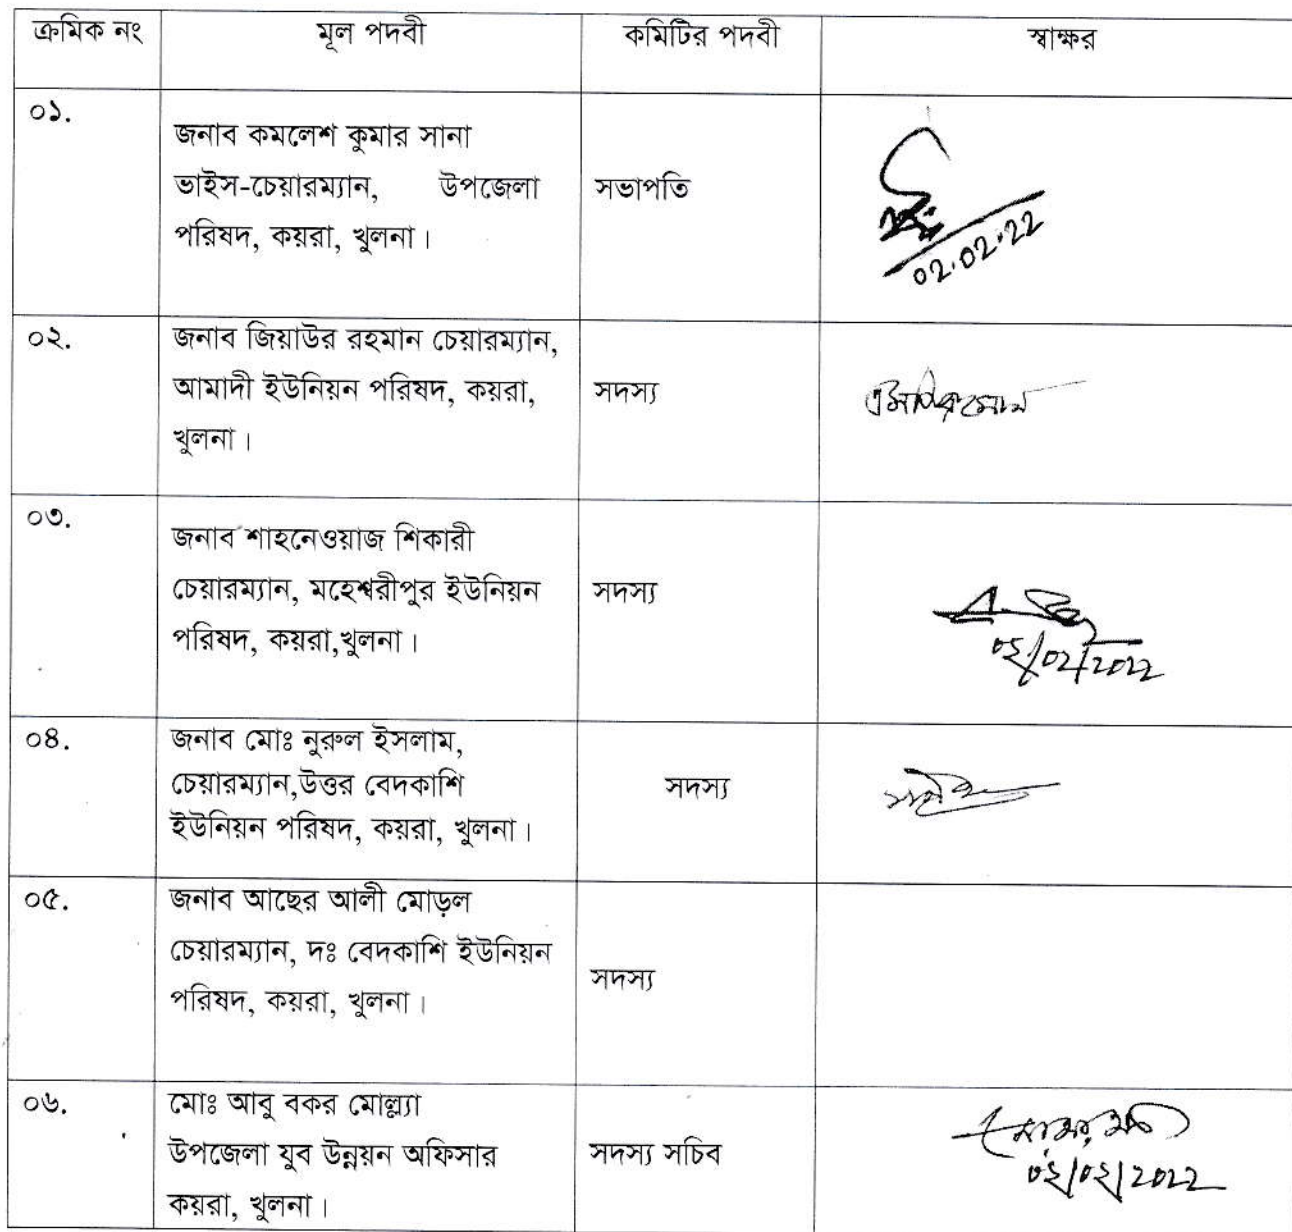 ক্রমিক নং মূল পদবী কমিটির পদবী স্বাক্ষর
০১.
জনাব কমলেশ কুমার সানা
ভাইস-চেয়ারম্যান, উপজেলা সভাপতি
পরিষদ, কয়রা, খুলনা।
02.02.22
০২. জনাব জিয়াউর রহমান চেয়ারম্যান,
আমাদী ইউনিয়ন পরিষদ, কয়রা, সদস্য
খুলনা।
০৩.
জনাব শাহনেওয়াজ শিকারী
চেয়ারম্যান, মহেশ্বরীপুর ইউনিয়ন সদস্য
পরিষদ, কয়রা,খুলনা।
০২/02/2022
০৪. জনাব মোঃ নুরুল ইসলাম,
চেয়ারম্যান,উত্তর বেদকাশি সদস্য
ইউনিয়ন পরিষদ, কয়রা, খুলনা।
০৫. জনাব আছের আলী মোড়ল
চেয়ারম্যান, দঃ বেদকাশি ইউনিয়ন সদস্য
পরিষদ, কয়রা, খুলনা।
০৬. মোঃ আবু বকর মোল্ল্যা
উপজেলা যুব উন্নয়ন অফিসার সদস্য সচিব
কয়রা, খুলনা।
০২/০২/2022